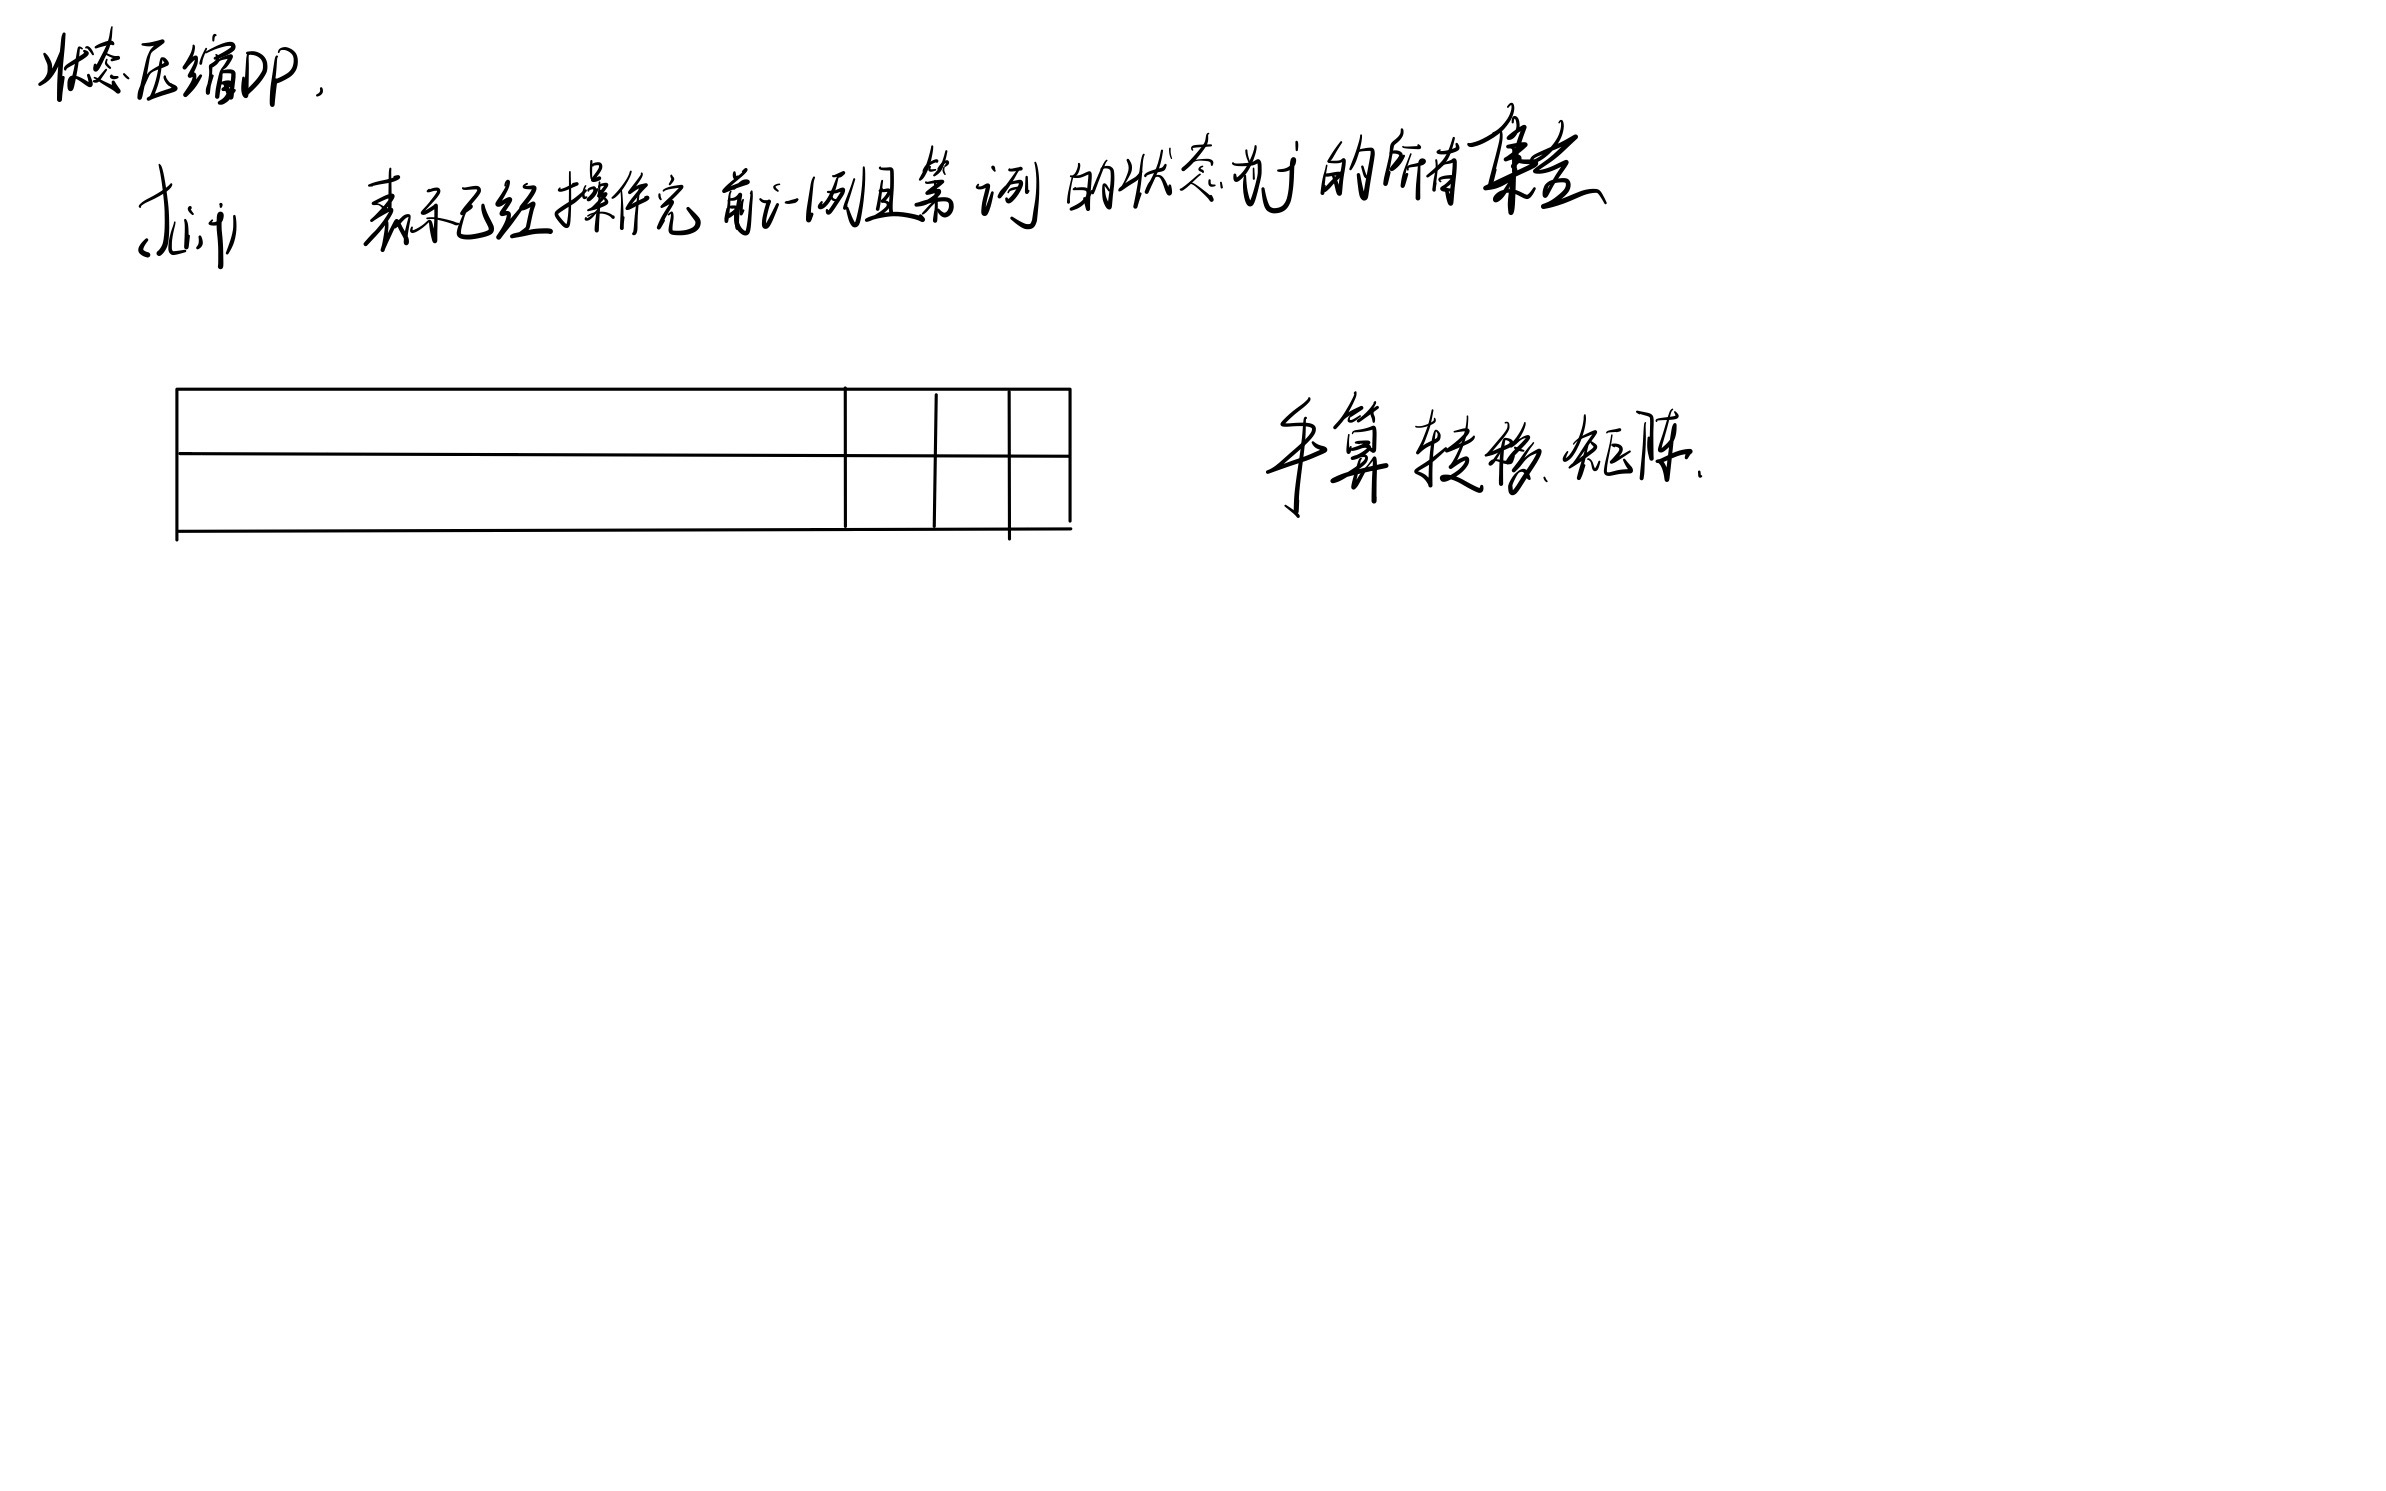 状态压缩DP.
f[i,j] 表示已经操作完前i-1列且第i列的状态为j的所有集合
手算 转移、矩阵.